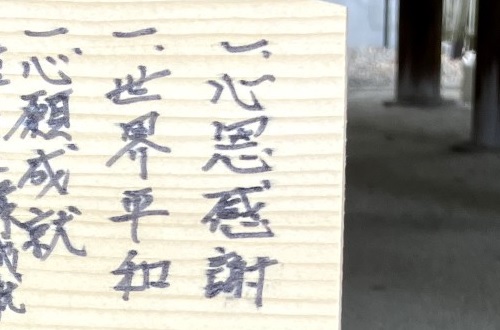 一、心恩感謝
一、世界平和
一、心願成就